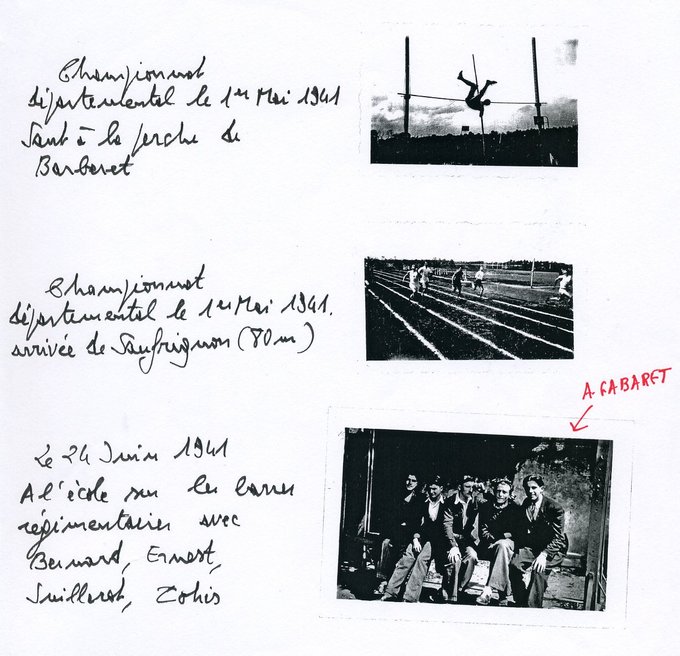 Championnat
départemental le 1er Mai 1941
Saut à la perche de
Barbaret
Championnat
départemental le 1er Mai 1941.
arrivée de Saufrignon (80m)
A. GABARET
Le 24 Juin 1941
A l'école sur les barres
régimentaires avec
Bernard, Ernest,
Juillerot, Zohis